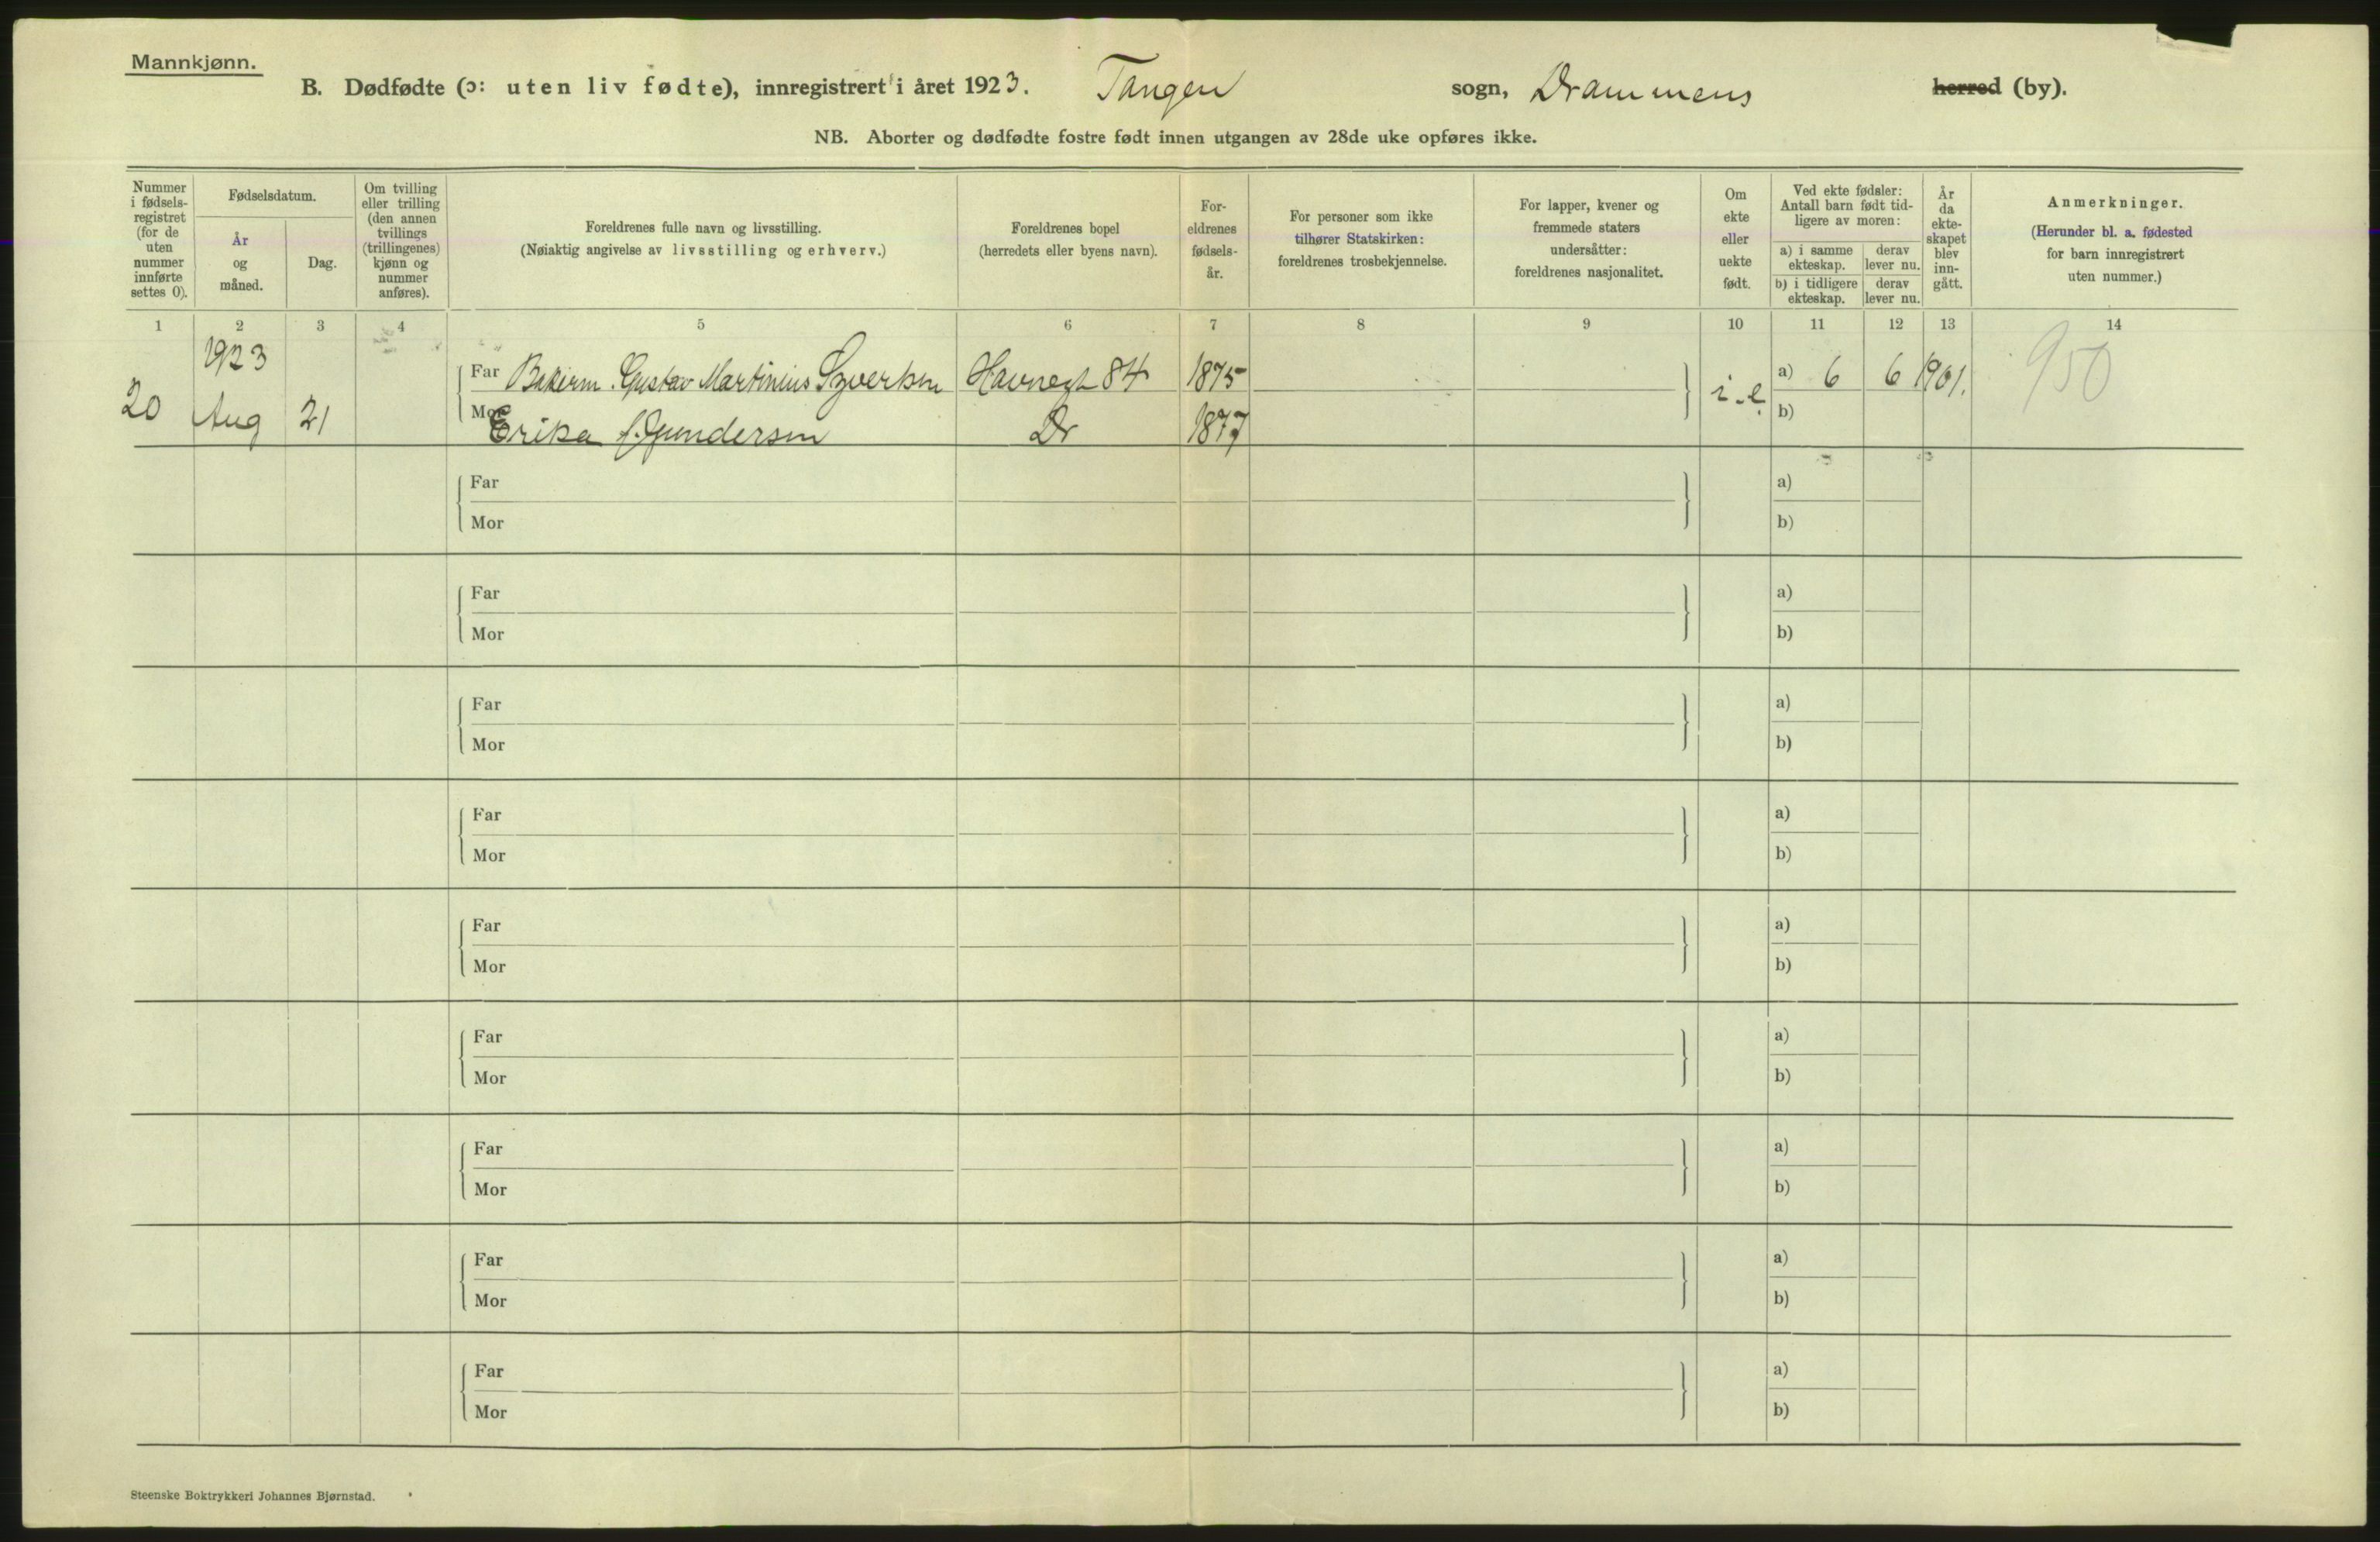 Mannkjønn.
B. Dødfødte (ɔ: uten liv fødte), innregistrert i året 1923. Tangen sogn, Drammens herred (by).
NB. Aborter og dødfødte fostre født innen utgangen av 28de uke opføres ikke.
Nummer
i fødsels-
registret
(for de
uten
nummer
innførte
settes 0).
Fødselsdatum.
År
og
måned.
Dag.
Om tvilling
eller trilling
(den annen
tvillings
(trillingenes)
kjønn og
nummer
anføres).
Foreldrenes fulle navn og livsstilling.
(Nøiaktig angivelse av livsstilling og erhverv.)
Foreldrenes bopel
(herredets eller byens navn).
For-
eldrenes
fødsels-
år.
For personer som ikke
tilhører Statskirken:
foreldrenes trosbekjennelse.
For lapper, kvener og
fremmede staters
undersåtter:
foreldrenes nasjonalitet.
Om
ekte
eller
uekte
født.
Ved ekte fødsler:
Antall barn født tid-
ligere av moren:
a) i samme
ekteskap.
derav
lever nu.
b) i tidligere
ekteskap.
derav
lever nu.
År
da
ekte-
skapet
blev
inn-
gått.
Anmerkninger.
(Herunder bl. a. fødested
for barn innregistrert
uten nummer.)
1 2 3 4 5 6 7 8 9 10 11 12 13 14
1923
20 Aug 21
Far Bakerm. Gustav Martinius Syversen Havnegt 84 1875
i.e. a) 6 6 1901. 950
Mor Erika f. Gundersen Dr 1877
b)
Far a)
Mor b)
Far a)
Mor b)
Far a)
Mor b)
Far a)
Mor b)
Far a)
Mor b)
Far a)
Mor b)
Far a)
Mor b)
Far a)
Mor b)
Far a)
Mor b)
Steenske Boktrykkeri Johannes Bjørnstad.